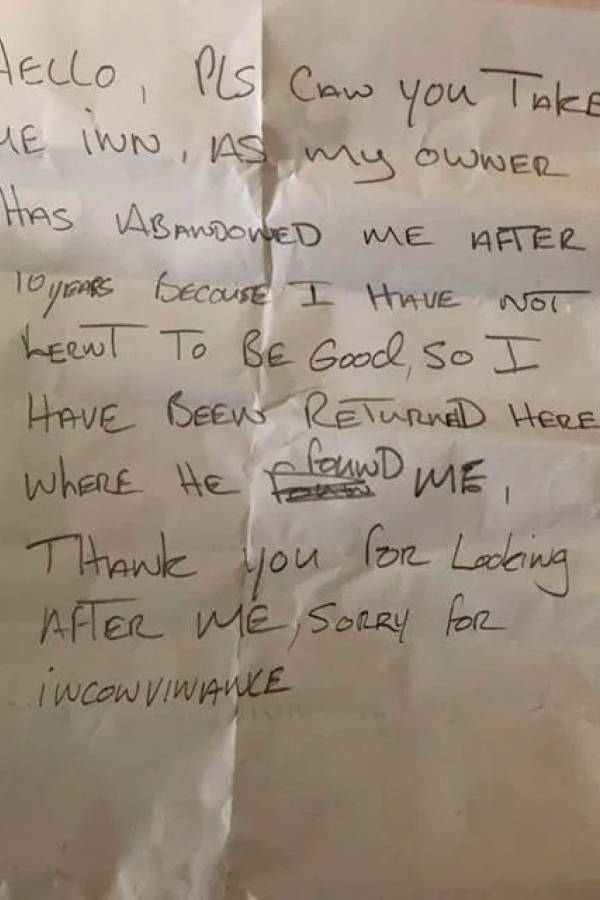 HELLO, PLS CAN YOU TAKE
ME INN, AS my OWNER
HAS ABANDOWED ME AFTER
10 yEARS BECOUSE I HAVE NOT
LERNT TO BE Good, SO I
HAVE BEEN RETURNED HERE
WHERE HE found ME,
THANK you for Looking
AFTER ME, SORRY for
INCONVINANCE